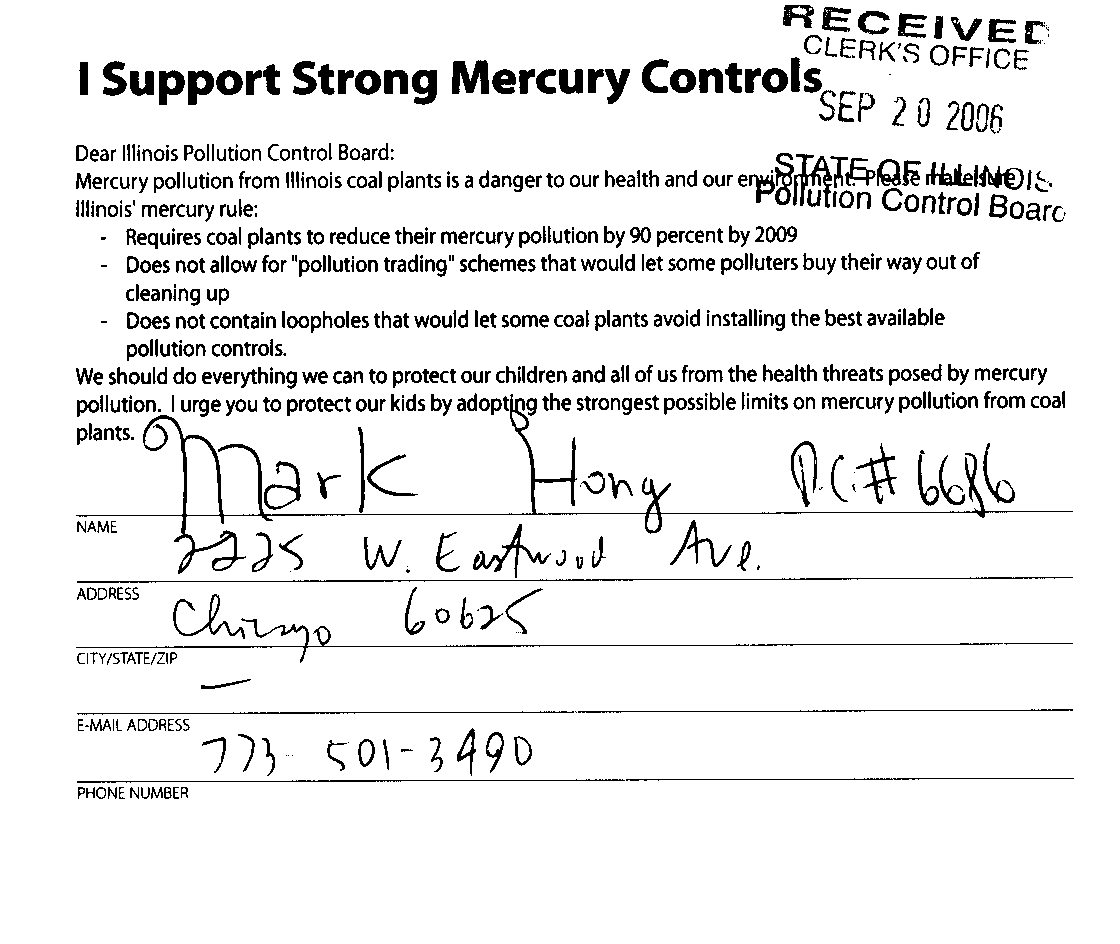 RECEIVED
CLERK'S OFFICE
I Support Strong Mercury Controls
SEP 20 2006
Dear Illinois Pollution Control Board:
STATE OF ILLINOIS
Mercury pollution from Illinois coal plants is a danger to our health and our environment. Please make sure
Pollution Control Board
Illinois' mercury rule:
- Requires coal plants to reduce their mercury pollution by 90 percent by 2009
- Does not allow for "pollution trading" schemes that would let some polluters buy their way out of
cleaning up
- Does not contain loopholes that would let some coal plants avoid installing the best available
pollution controls.
We should do everything we can to protect our children and all of us from the health threats posed by mercury
pollution. I urge you to protect our kids by adopting the strongest possible limits on mercury pollution from coal
plants.
Mark Hong P.C.# 6686
NAME
2225 W. Eastwood Ave.
ADDRESS
Chicago 60625
CITY/STATE/ZIP
—
E-MAIL ADDRESS
773-501-3490
PHONE NUMBER